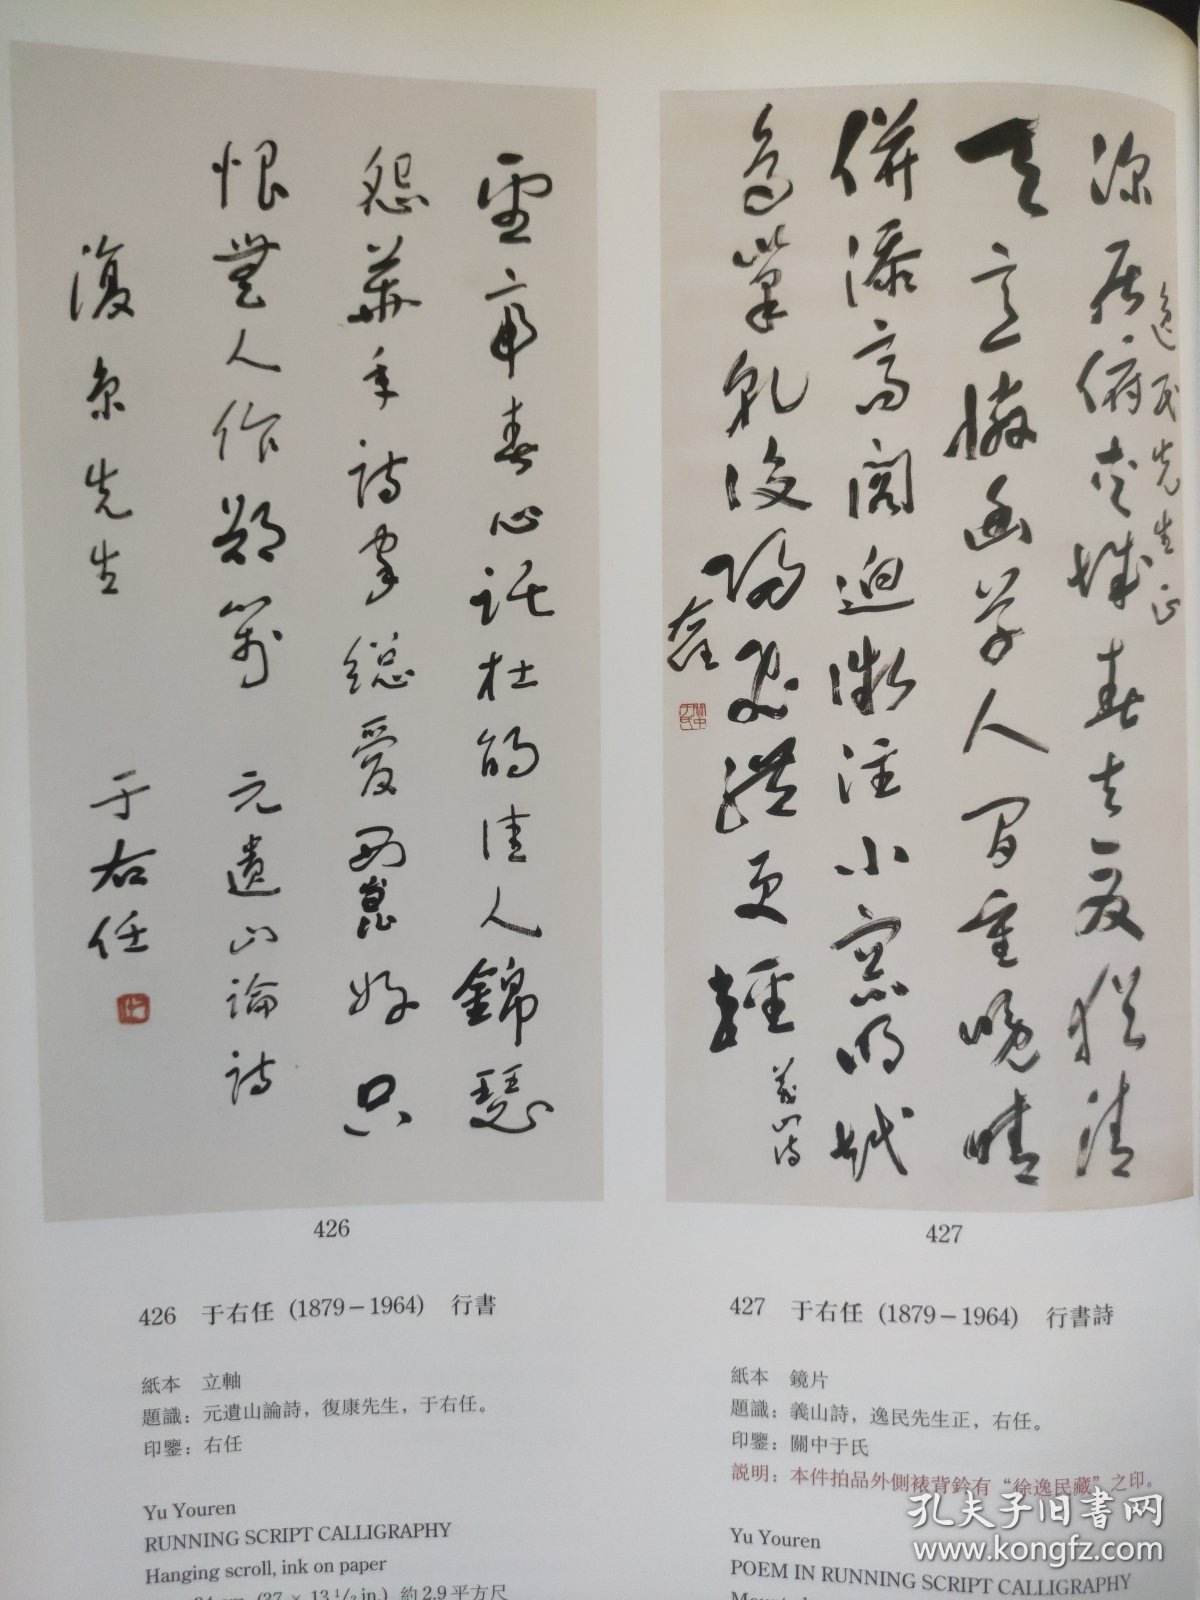 望帝春心託杜鵑佳人錦瑟
怨華年詩家總愛西崑好只
恨無人作鄭箋 元遺山論詩
復康先生 于右任
右任
426
逸民先生正
深居俯夾城春去夏猶清
天意憐幽草人間重晚晴
併添高閣迥微注小窗明越
鳥巢乾後歸飛體更輕 義山詩
右任
關中于氏
427
426 于右任 (1879－1964) 行書
紙本 立軸
題識：元遺山論詩，復康先生，于右任。
印鑒：右任
Yu Youren
RUNNING SCRIPT CALLIGRAPHY
Hanging scroll, ink on paper
(37 × 13 1/2 in.) 約2.9平方尺
427 于右任 (1879－1964) 行書詩
紙本 鏡片
題識：義山詩，逸民先生正，右任。
印鑒：關中于氏
説明：本件拍品外側裱背鈐有“徐逸民藏”之印。
Yu Youren
POEM IN RUNNING SCRIPT CALLIGRAPHY
孔夫子旧书网
www.kongfz.com